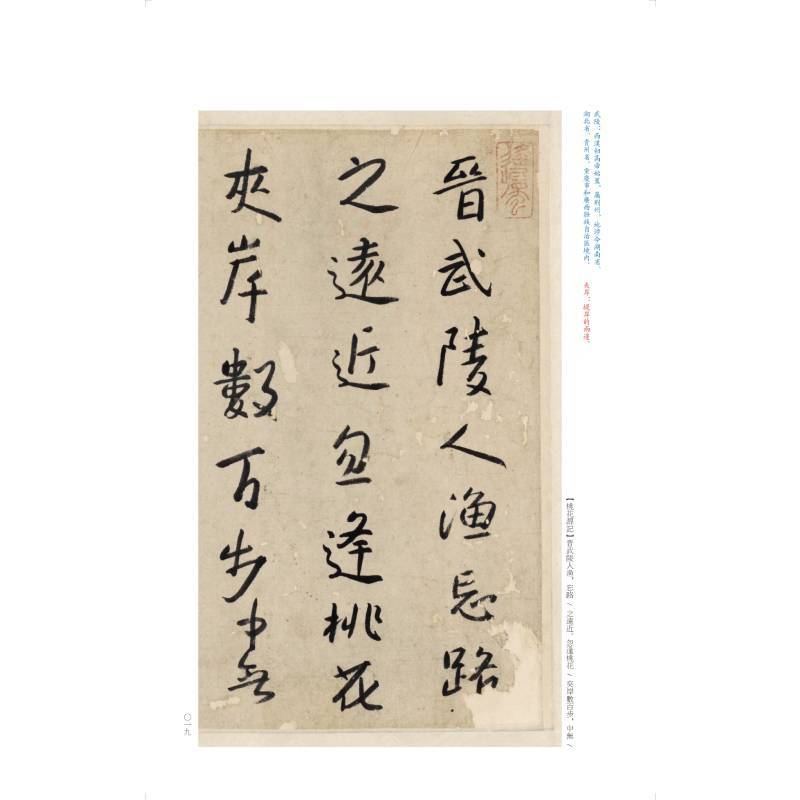 武陵：西漢初高帝始置，屬荆州，地涉今湖南省、
湖北省、貴州省、重慶市和廣西壯族自治區境内。
夾岸：堤岸的兩邊。
晉武陵人漁忘路
之遠近忽逢桃花
夾岸數百步中無
【桃花源記】晋武陵人漁，忘路／之遠近。忽逢桃花／夾岸數百步，中無／
〇一九